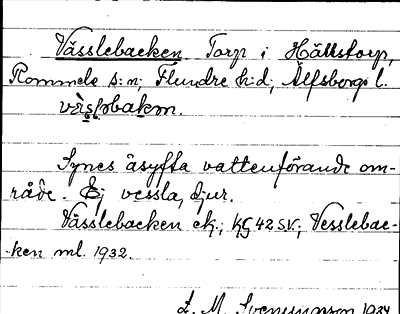 Vässlebacken. Torp i Hällstorp,
Rommele s:n; Flundre h:d, Älfsborgs l.
Synes åsyfta vattenförande om-
råde. Ej vessla, djur.
Vässlebacken ek.; KG 42 SV.; Vesslebac-
ken ml. 1932.
L. M. Svenungsson 1934